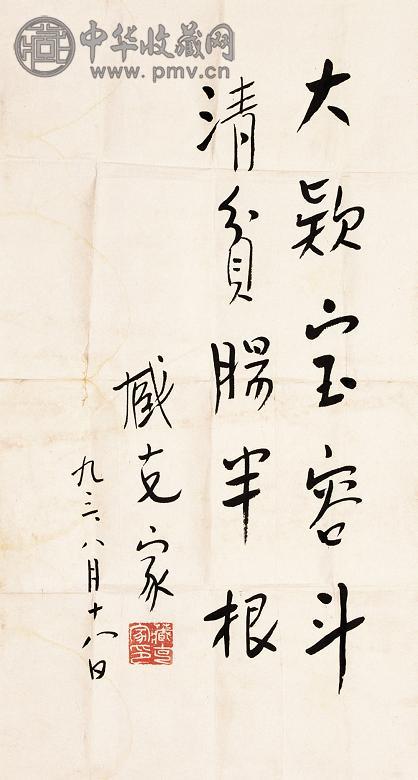 中华收藏网
www.pmv.cn
大款宝容斗
清貧腸半根
臧克家
九三、八月十八日
臧克家印